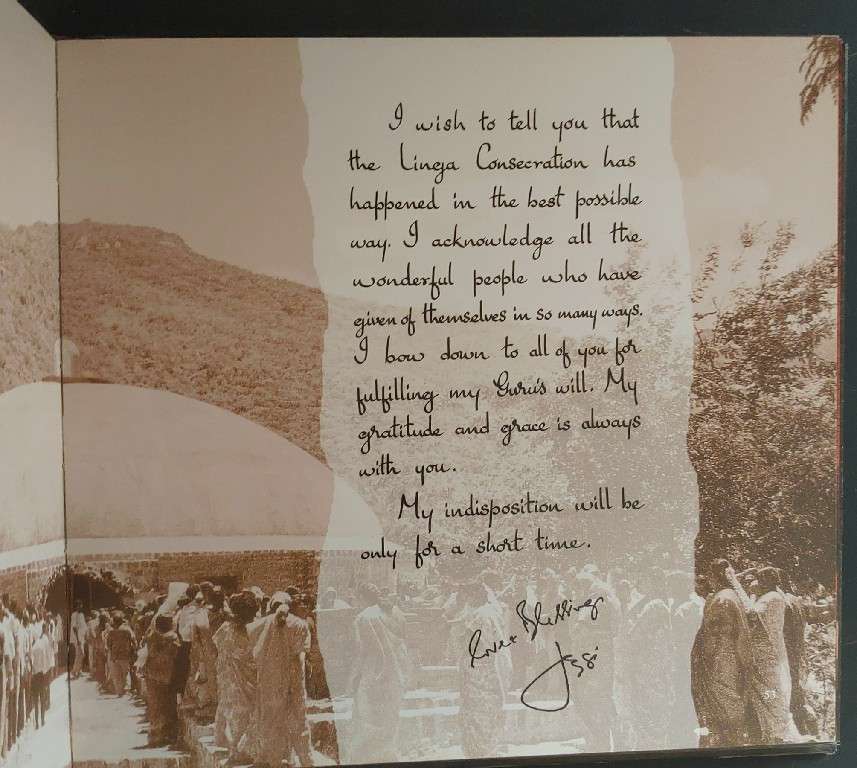 I wish to tell you that
the Linga Consecration has
happened in the best possible
way. I acknowledge all the
wonderful people who have
given of themselves in so many ways.
I bow down to all of you for
fulfilling my Guru's will. My
gratitude and grace is always
with you.
My indisposition will be
only for a short time.
Love & Blessings
Jaggi
53